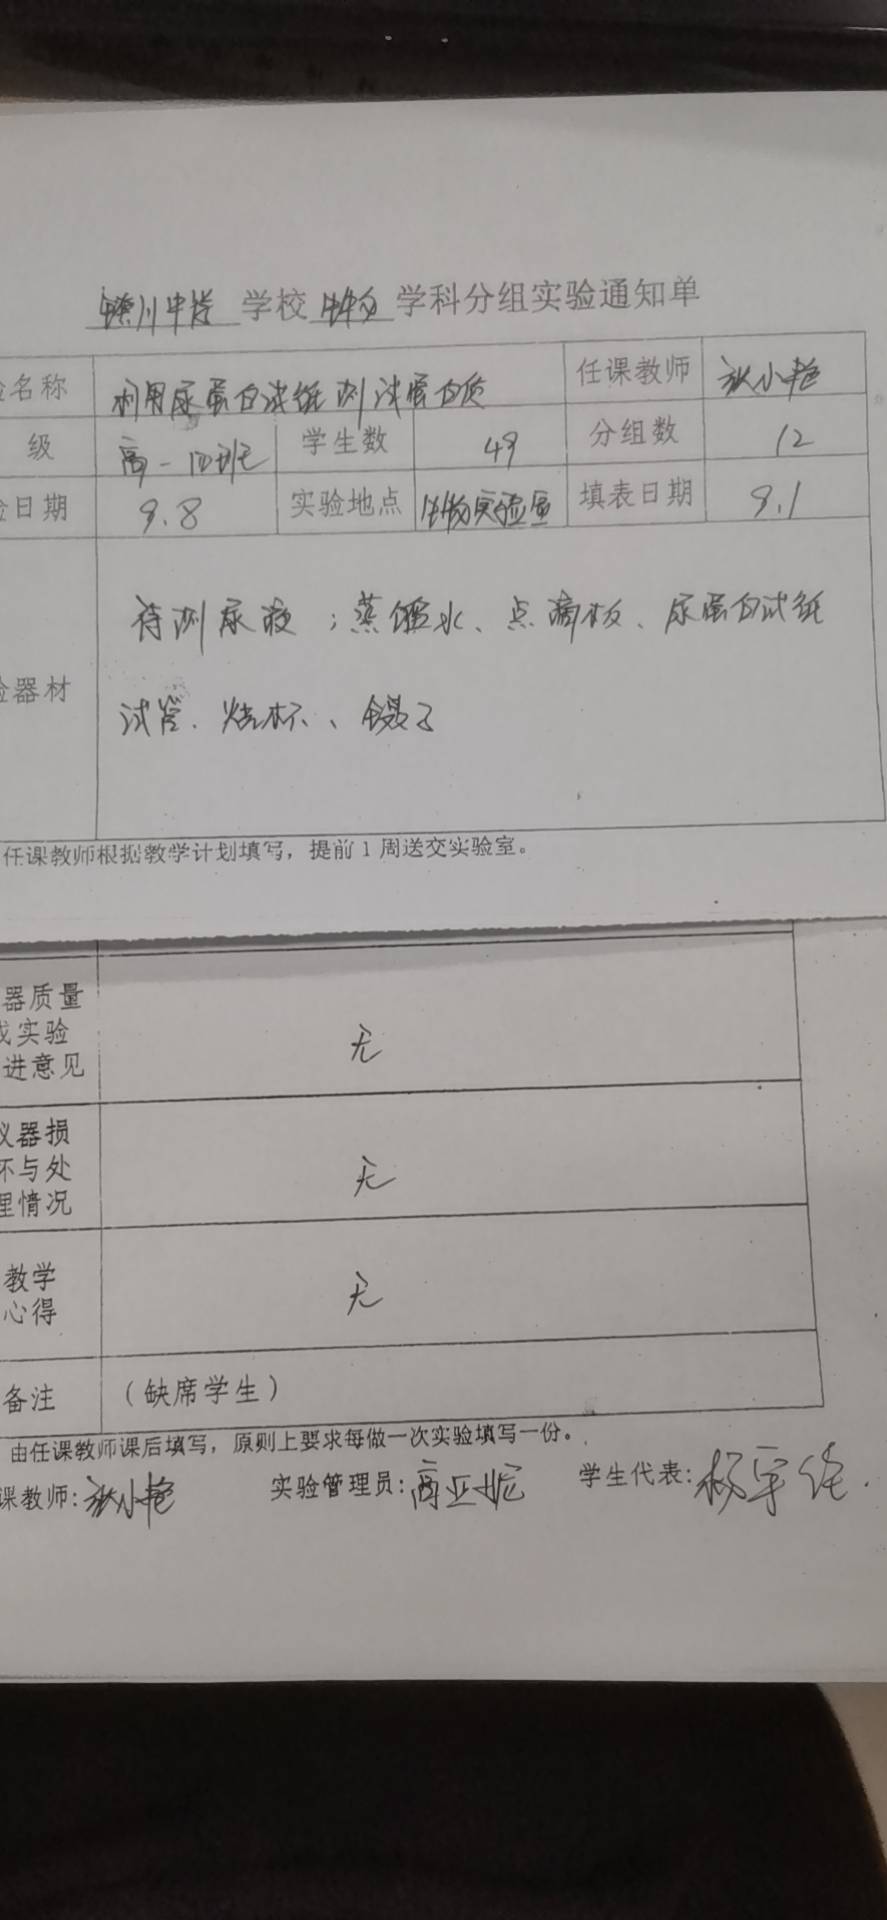 川中学 学校 生物 学科分组实验通知单
验名称 利用尿蛋白试纸测试蛋白质 任课教师 小艳
级 高一 班 学生数 49 分组数 12
验日期 9.8 实验地点 生物实验室 填表日期 9.1
待测尿液；蒸馏水、点滴板、尿蛋白试纸
验器材
试管、烧杯、镊子
任课教师根据教学计划填写，提前1周送交实验室。
器质量
或实验 无
进意见
仪器损
坏与处 无
理情况
教学 无
心得
备注 （缺席学生）
由任课教师课后填写，原则上要求每做一次实验填写一份。
课教师: 小艳 实验管理员: 高亚妮 学生代表: 杨宇